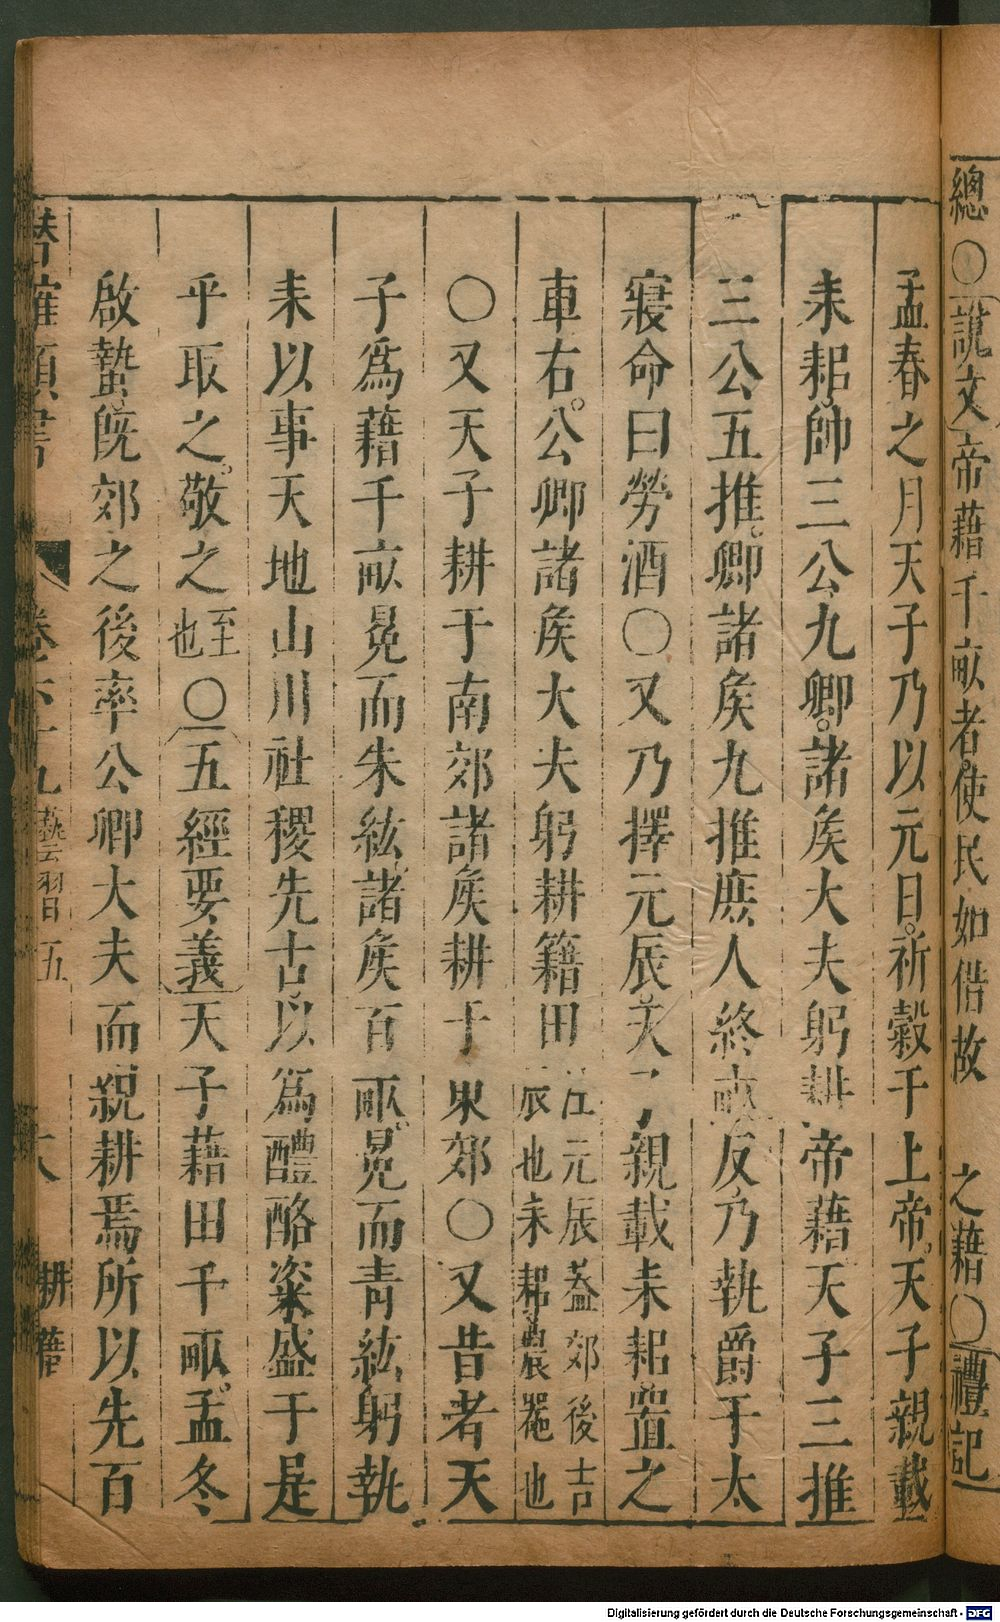 總○說文帝藉千畝者使民如借故 之藉○禮記
孟春之月天子乃以元日祈穀于上帝天子親載
耒耜帥三公九卿諸矦大夫躬耕帝藉天子三推
三公五推卿諸矦九推庶人終畝反乃執爵于太
寢命曰勞酒○又乃擇元辰天子親載耒耜置之
車右公卿諸矦大夫躬耕籍田注元辰葢郊後吉辰也耒耜農器也
○又天子耕于南郊諸矦耕于東郊○又昔者天
子爲藉千畝冕而朱紘諸矦百畝冕而青紘躬執
耒以事天地山川社稷先古以爲醴酪粢盛于是
乎取之敬之至也○五經要義天子藉田千畝孟冬
啟蟄旣郊之後率公卿大夫而親耕焉所以先百
潛確類書 卷六十九 藝習五 耕藉
Digitalisierung gefördert durch die Deutsche Forschungsgemeinschaft - DFG